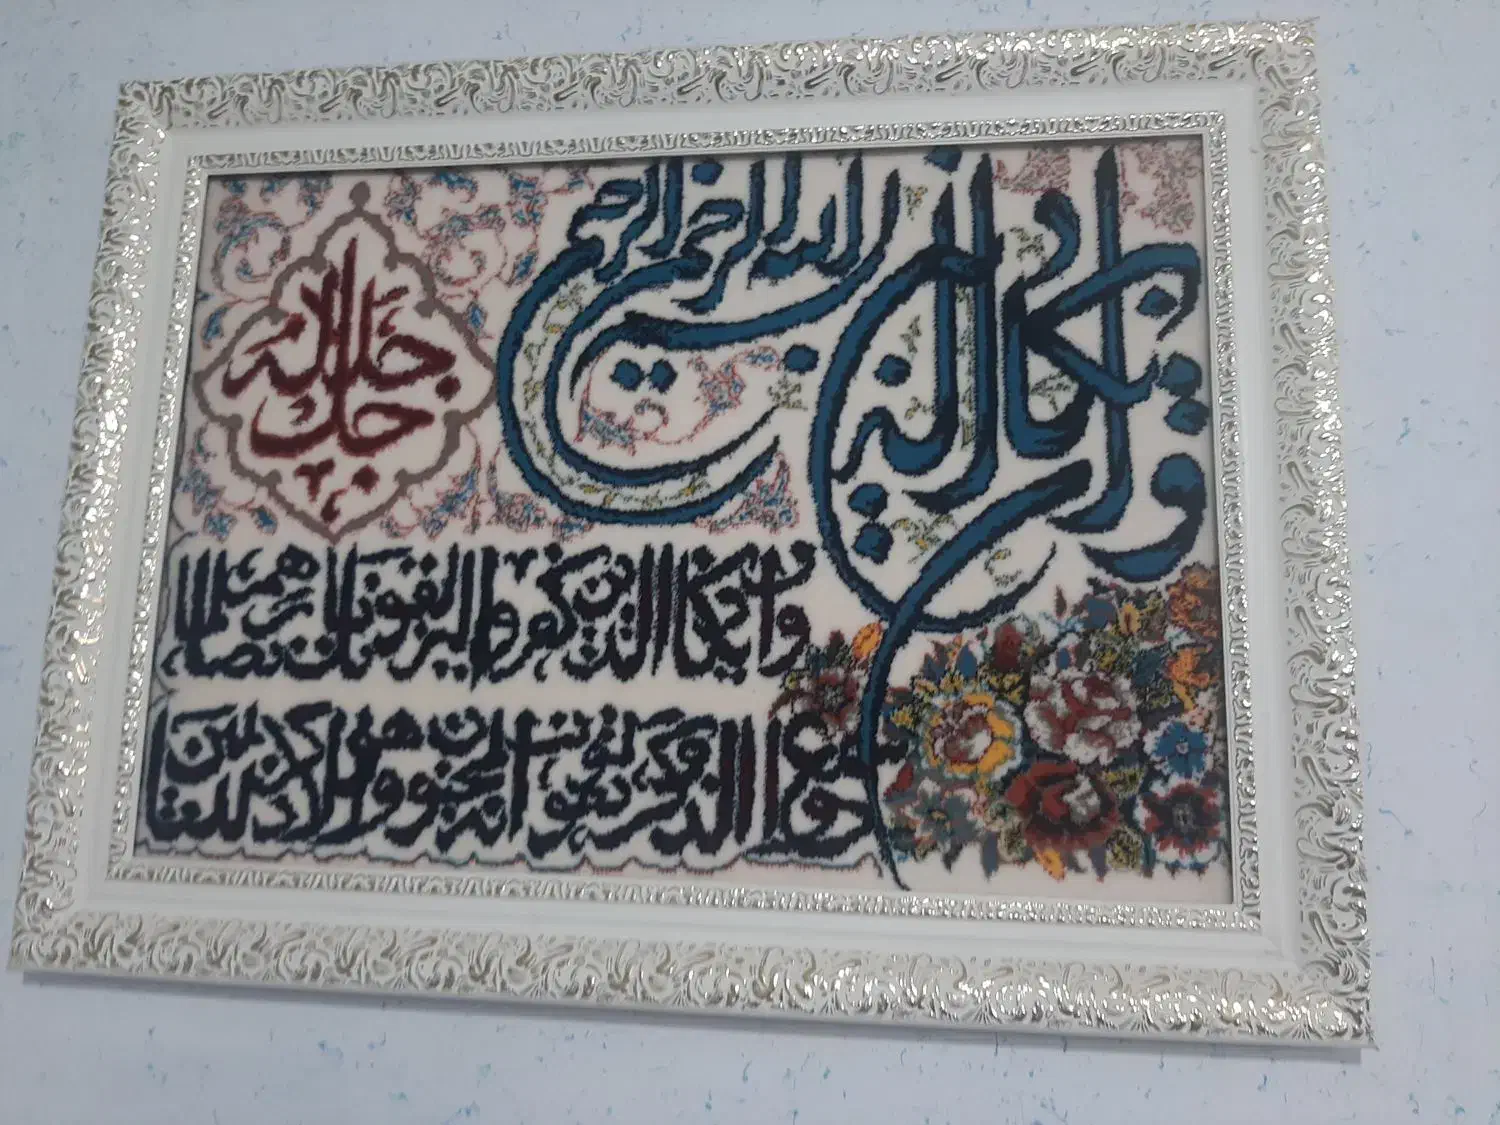 بسم الله الرحمن الرحيم
وان يكاد الذين
جل جلاله
وان يكاد الذين كفروا ليزلقونك بابصارهم لما
سمعوا الذكر ويقولون انه لمجنون وما هو الا ذكر للعالمين